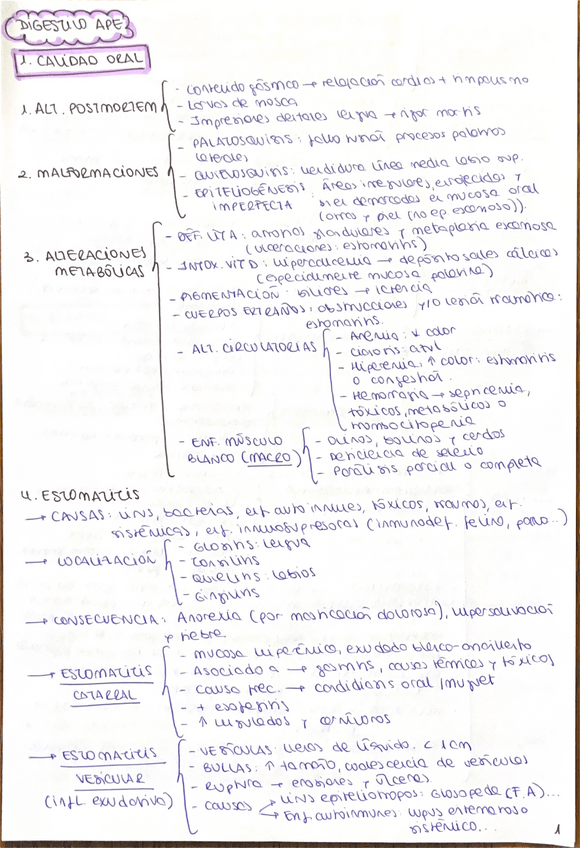 DIGESTIVO APE
1. CAVIDAD ORAL
1. ALT. POSTMORTEM
- Contenido gástrico → relajación cardias + timpanismo
- Larvas de mosca
- Impresiones dentales lengua → rigor mortis
2. MALFORMACIONES
- PALATOSQUISIS: fallo fusión procesos palatinos
laterales
- QUEILOSQUISIS: hendidura línea media labio sup.
- EPITELIOGÉNESIS IMPERFECTA: áreas irregulares, enrojecidas y
bien demarcadas en mucosa oral
(otros y piel (no ep escamoso)).
3. ALTERACIONES METABÓLICAS
- DEF. VIT A: atrofia glandulares y metaplasia escamosa
(ulceraciones: estomatitis)
- INTOX. VIT D: hipercalcemia → depósito sales cálcicas
(especialmente mucosa palatina)
- PIGMENTACIÓN: biliares → ictericia
- CUERPOS EXTRAÑOS: obstrucciones y/o lesión traumática:
estomatitis.
- ALT. CIRCULATORIAS
- Anemia: ↓ color
- Cianosis: azul
- Hiperemia, ↑ color: estomatitis
o congestión.
- Hemorragia → septicemia,
tóxicos, metabólicos o
trombocitopenia
- ENF. MÚSCULO
BLANCO (MACRO)
- ovinos, bovinos y cerdos
- Deficiencia de selenio
- Parálisis parcial o completa
4. ESTOMATITIS
→ CAUSAS: virus, bacterias, enf autoinmunes, tóxicos, traumas, enf.
sistémicas, enf. inmunosupresoras (inmunodef. felina, ...)
→ LOCALIZACIÓN
- Glositis: lengua
- Tonsilitis
- Queilitis: labios
- Gingivitis
→ CONSECUENCIA: Anorexia (por masticación dolorosa), hipersalivación
y fiebre.
→ ESTOMATITIS
CATARRAL
- mucosa hiperémica, exudado blanco-amarillento
- Asociado a → gastritis, causas térmicas y tóxicos
- causa frec. → candidiasis oral / muguet
- + esofagitis
- ↑ ungulados y carnívoros
→ ESTOMATITIS
VESICULAR
(infl. exudativa)
- VESÍCULAS: llenas de líquido. < 1cm
- BULLAS: ↑ tamaño, coalescencia de vesículas
- ruptura → erosiones y úlceras.
- causas → virus epiteliotropos: Glosopeda (F.A)...
→ Enf. autoinmunes: lupus eritematoso
sistémico...
1